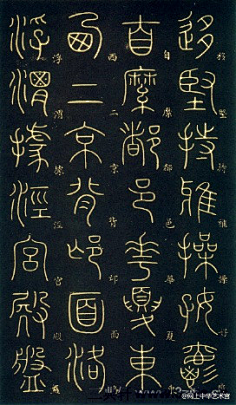 移堅持雅操好爵
自縻都邑華夏東
西二京背邙面洛
浮渭據涇宮殿盤
@网上中华艺术宫